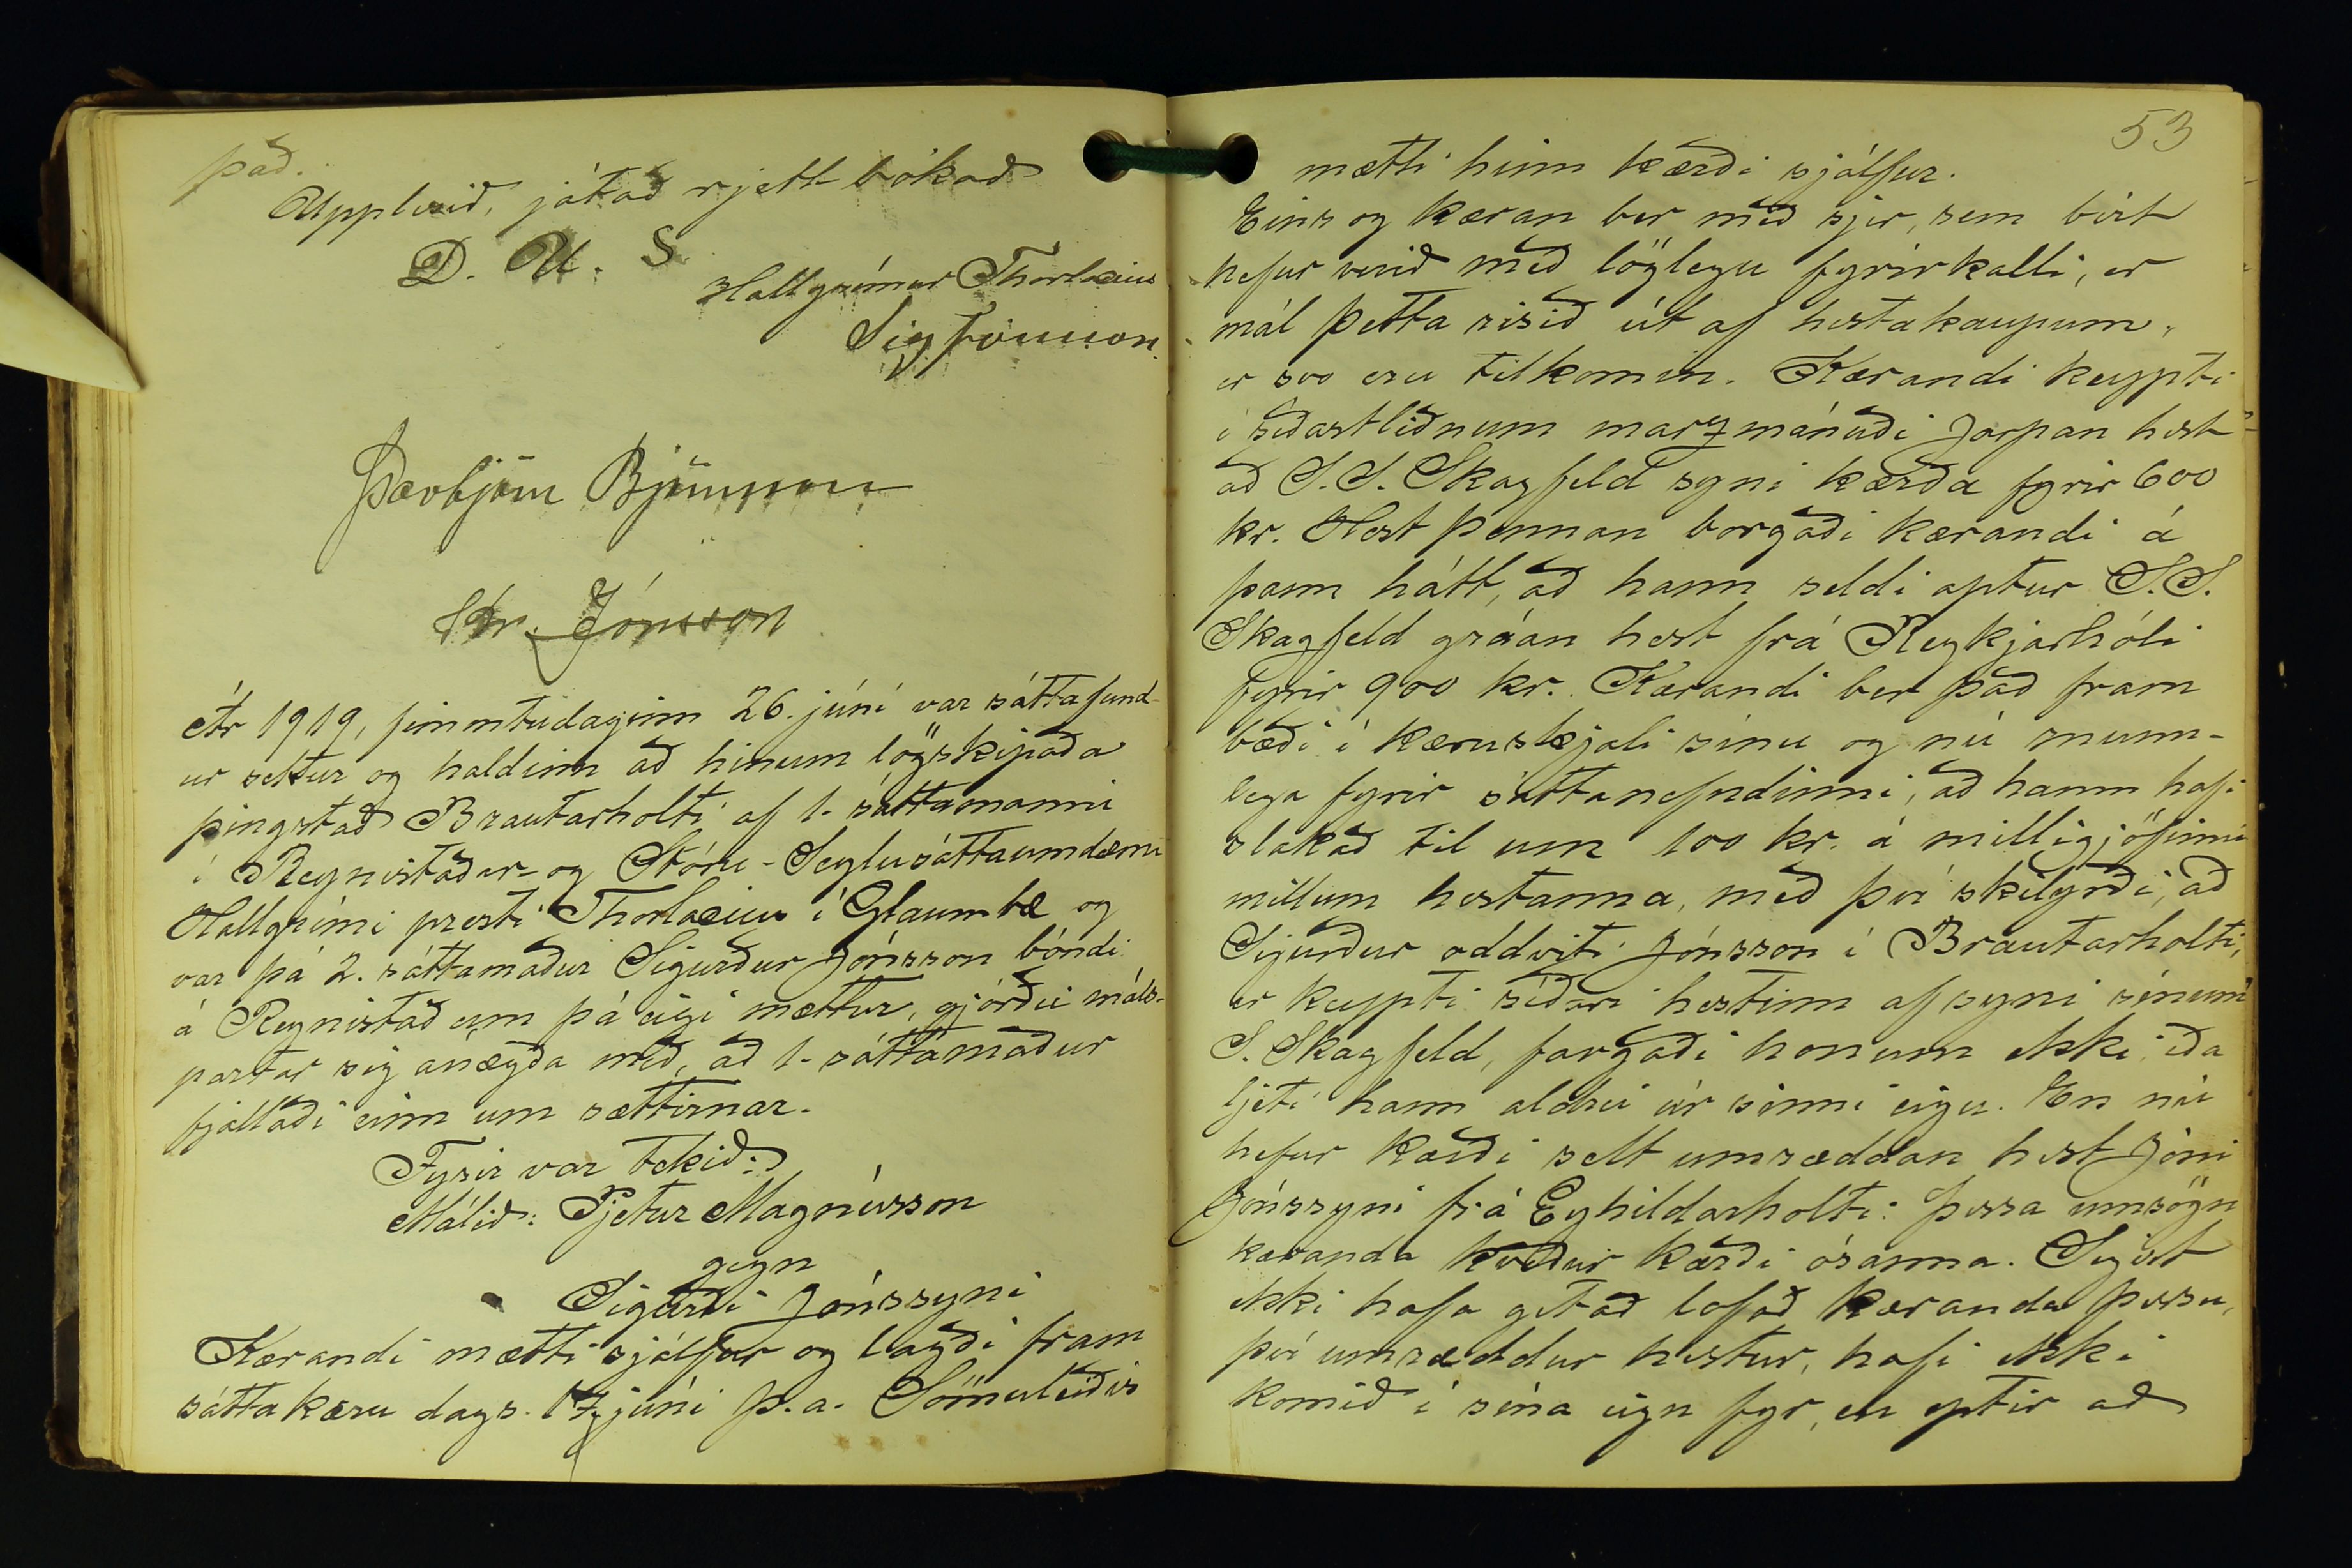 það.
Upplesið, játað rjett bókað
D. U. S.
Hallgrímur Thorlacius
Sig Jónsson.
Þorbjörn Björnsson
Str. Jónsson
Ár 1919, fimmtudaginn 26. júní var sáttafund-
ur settur og haldinn að hinum lögskipaða
þingstað Brautarholti af 1. sáttamanni
í Reynistaðar- og Stóru-Seylusáttaumdæmi
Hallgrími presti Thorlacius í Glaumbæ og
var þá 2. sáttamaður Sigurður Jónsson bóndi
á Reynistað um þá eigi mættur, gjörðu máls-
partar sig ánægða með, að 1. sáttamaður
fjallaði einn um sættirnar.
Fyrir var tekið:
Málið: Pjetur Magnússon
gegn
Sigurði Jónssyni
Kærandi mætti sjálfur og lagði fram
sáttakæru dags. 17 júní þ.a. Sömuleiðis
53
mætti hinn kærði sjálfur.
Eins og kæran ber með sjer, sem birt
hefur verið með löglegu fyrirkalli, er
mál þetta risið út af hestakaupum,
er svo eru tilkomin. Kærandi keypti
í síðastliðnum marzmánuði jarpan hest
að S.S. Skagfeld syni kærða fyrir 600
kr. Hest þennan borgaði kærandi á
þann hátt, að hann seldi aptur S.S.
Skagfeld gráan hest frá Reykjarhóli
fyrir 900 kr. Kærandi ber það fram
bæði í kæruskjali sínu og nú munn-
lega fyrir sáttanefndinni, að hann hafi
slakað til um 100 kr. á milligjöfinni
millum hestanna, með því skilyrði, að
Sigurður oddviti Jónsson í Brautarholti,
er keypti síðari hestinn af syni sínum
S. Skagfeld, fargaði honum ekki eða
ljeti hann aldrei úr sinni eigu. En nú
hefur kærði selt umræddan hest Jóni
Jónssyni frá Eyhildarholti: Þessa umsögn
kæranda kveður kærði ósanna. Segist
ekki hafa getað lofað kæranda þessu,
því umræddur hestur, hafi ekki
komið í sína eign fyr, en eptir að